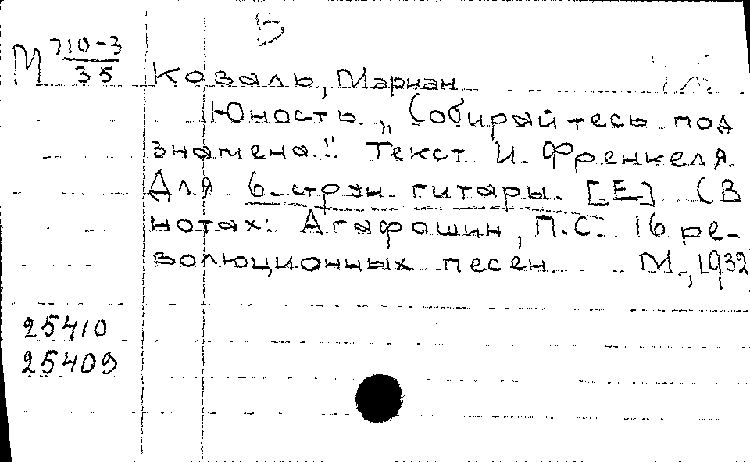 Б
М 710-3
35
Коваль, Мариан
Юность „Собирайтесь под
знамена." Текст И. Френкеля.
Для 6-струн. гитары. [Е] (В
нотах: Агафошин, П.С. 16 ре-
волюционных песен М., 1932
25410
25409